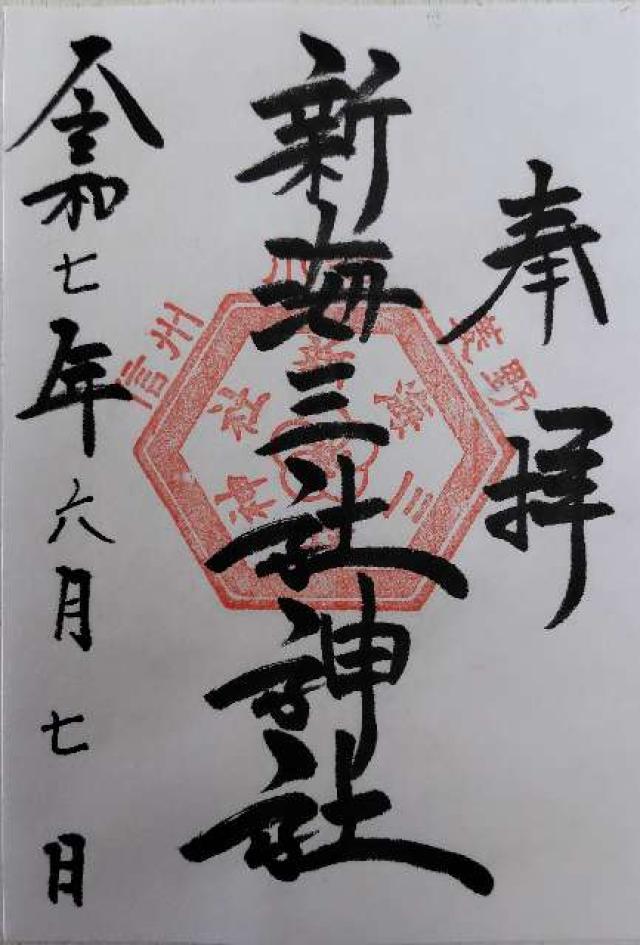 奉拝
新海三社神社
令和七年六月七日
信州
荒野
新海三社神社